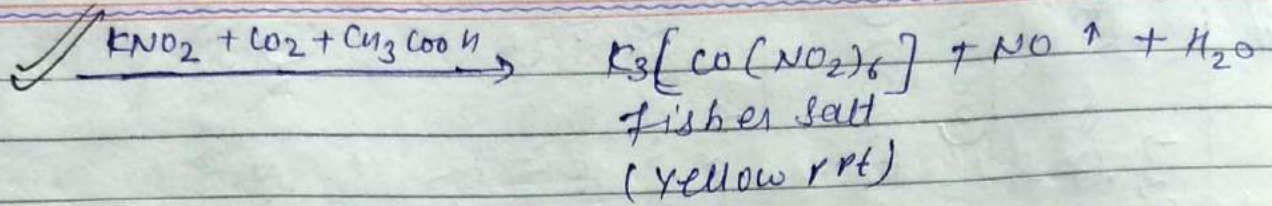 KNO2 + CO2 + CH3COOH → K3[CO(NO2)6] + NO ↑ + H2O
fisher salt
(yellow ppt)